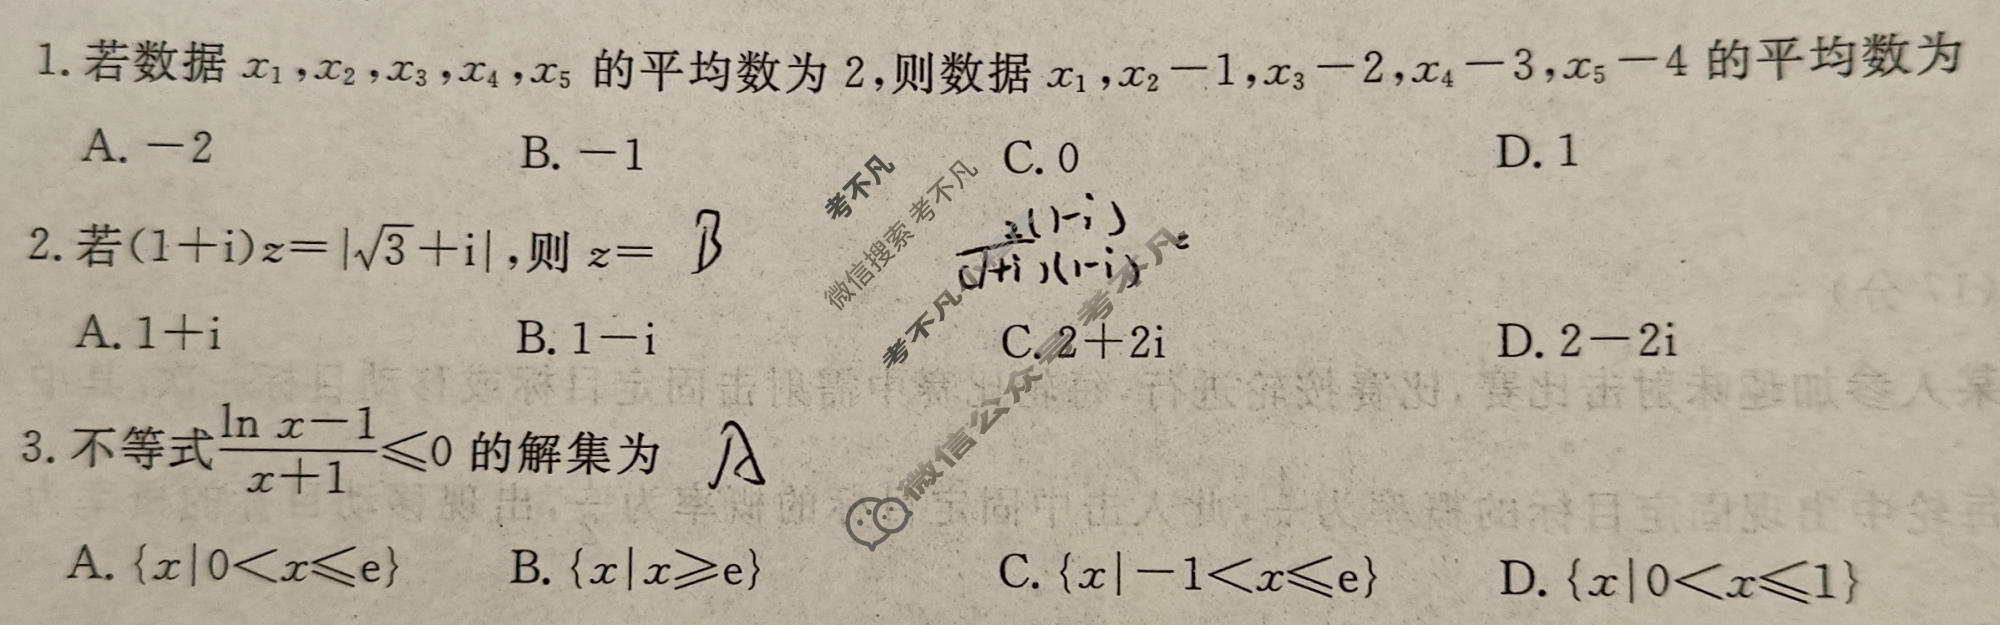 1. 若数据 x₁,x₂,x₃,x₄,x₅ 的平均数为 2,则数据 x₁,x₂－1,x₃－2,x₄－3,x₅－4 的平均数为
A. －2 B. －1 C. 0 D. 1
2. 若(1＋i)z＝|√3＋i|,则 z＝ B
2(1-i)
(1+i)(1-i) =
A. 1＋i B. 1－i C. 2＋2i D. 2－2i
3. 不等式 (ln x－1)/(x＋1) ≤0 的解集为 A
A. {x|0<x≤e} B. {x|x≥e} C. {x|－1<x≤e} D. {x|0<x≤1}
考不凡
微信搜索 考不凡
考不凡
微信公众号 考不凡